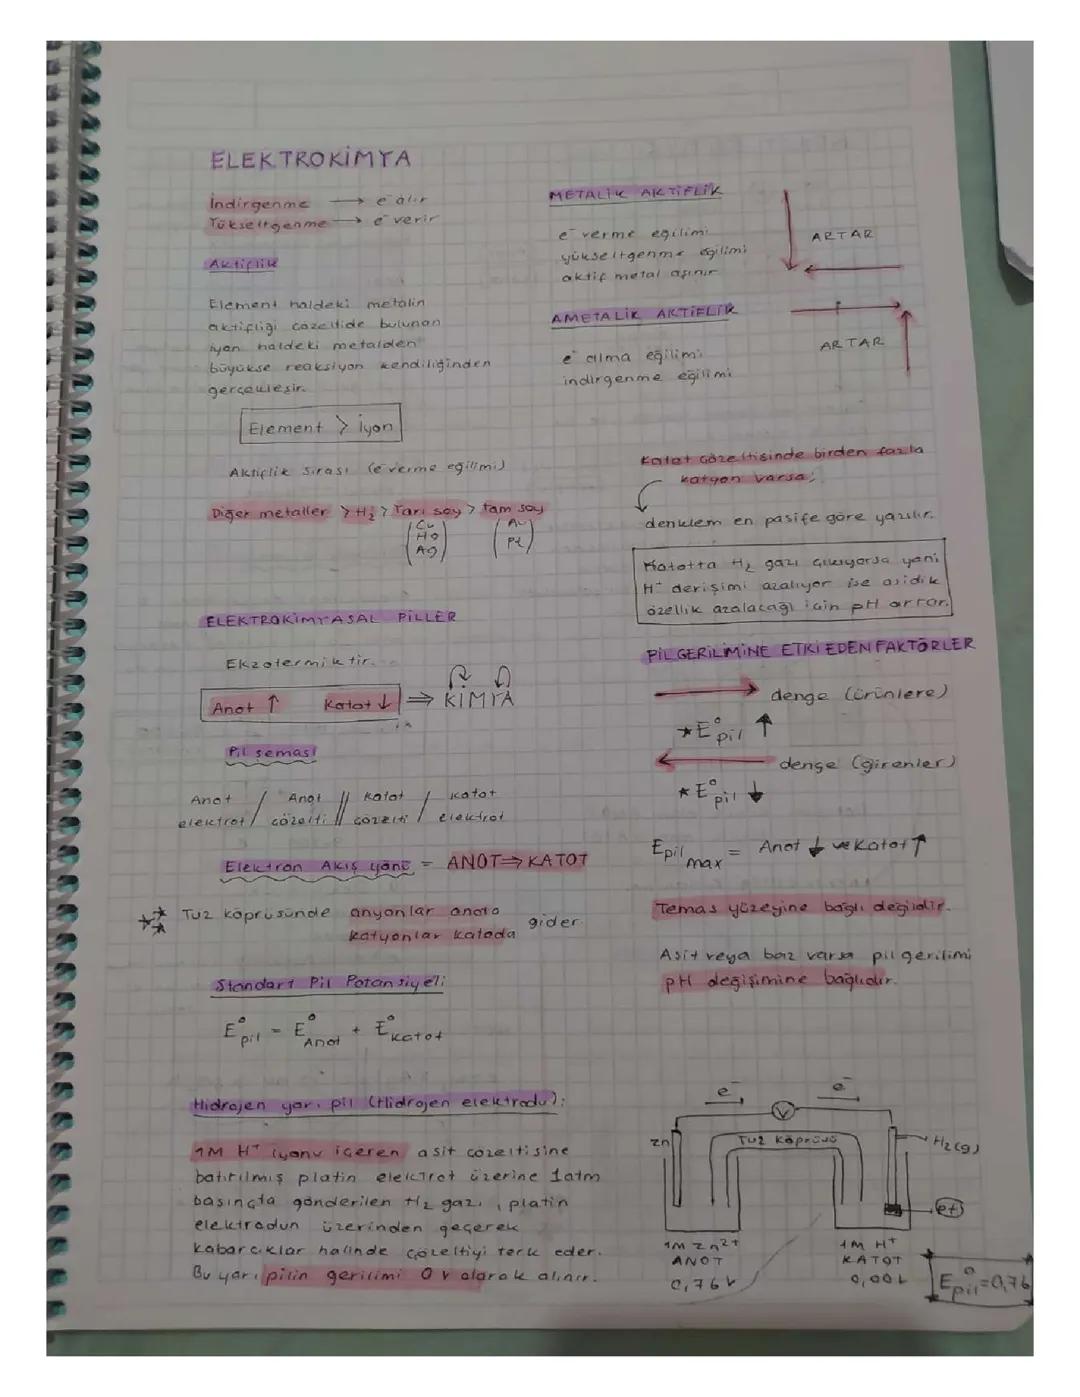 ELEKTROKİMYA
İndirgenme → e⁻ alır
Yükseltgenme → e⁻ verir
Aktiflik
Element haldeki metalin
aktifliği çözeltide bulunan
iyon haldeki metalden
büyükse reaksiyon kendiliğinden
gerçekleşir.
Element > İyon
Aktiflik sırası (e⁻ verme eğilimi)
Diğer metaller > H₂ > Yarı soy > tam soy
Cu
Hg
Ag
Au
Pt
ELEKTROKİMYASAL PİLLER
Ekzotermiktir.
Anot ↑ Katot ↓ ⇒ KİMYA
Pil şeması
Anot elektrot / Anot çözelti // Katot çözelti / Katot elektrot
Elektron Akış yönü = ANOT ⇒ KATOT
Tuz köprüsünde anyonlar anota
katyonlar katoda gider.
Standart Pil Potansiyeli
E°pil = E°Anot + E°Katot
Hidrojen yarı pil (Hidrojen elektrodu):
1M H⁺ iyonu içeren asit çözeltisine
batırılmış platin elektrot üzerine 1atm
basınçta gönderilen H₂ gazı, platin
elektrodun üzerinden geçerek
kabarcıklar halinde çözeltiyi terk eder.
Bu yarı pilin gerilimi 0 V olarak alınır.
METALİK AKTİFLİK
e⁻ verme eğilimi
yükseltgenme eğilimi
aktif metal aşınır
ARTAR
AMETALİK AKTİFLİK
e⁻ alma eğilimi
indirgenme eğilimi
ARTAR
Katot çözeltisinde birden fazla
katyon varsa;
denklem en pasife göre yazılır.
Katotta H₂ gazı çıkıyorsa yani
H⁺ derişimi azalıyor ise asidik
özellik azalacağı için pH artar.
PİL GERİLİMİNE ETKİ EDEN FAKTÖRLER
→ denge (ürünlere)
★E°pil ↑
← denge (girenler)
★E°pil ↓
Epil max = Anot ↓ ve Katot ↑
Temas yüzeyine bağlı değildir.
Asit veya baz varsa pil gerilimi
pH değişimine bağlıdır.
e⁻ e⁻
V
Zn
Tuz Köprüsü
H₂(g)
Pt
1M Zn²⁺
ANOT
0,76 V
1M H⁺
KATOT
0,00 V
E°pil=0,76